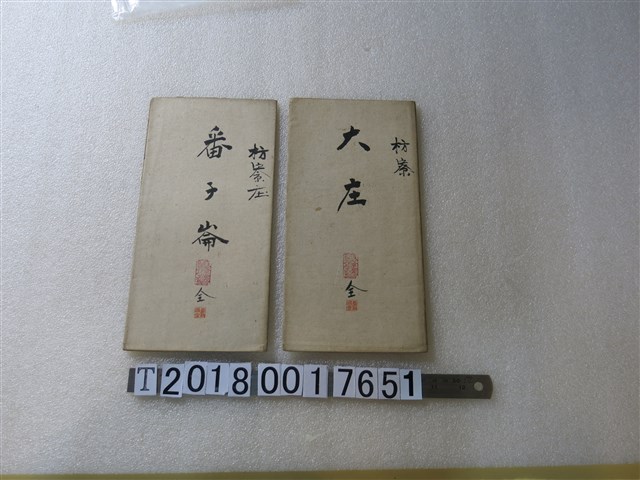 枋寮
大庄
全
枋寮庄
番子崙
全
T20180017651